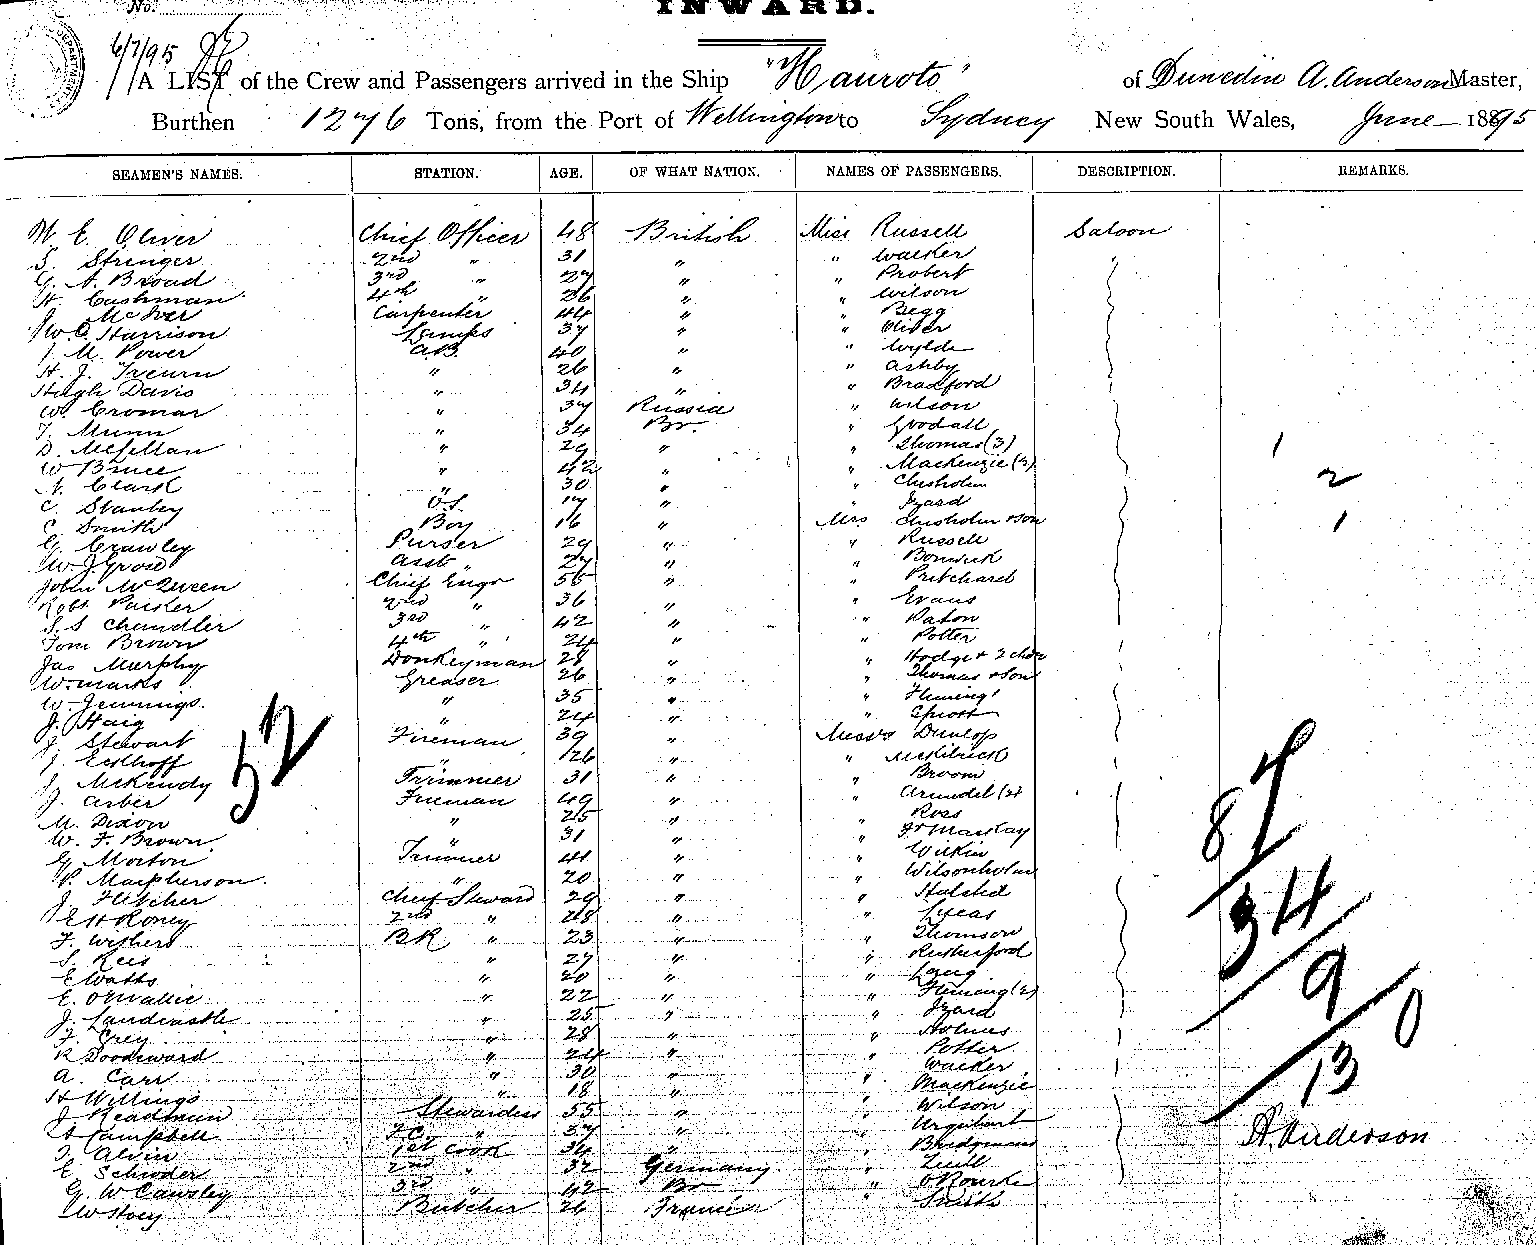 No.
INWARD.
6/7/95
A LIST of the Crew and Passengers arrived in the Ship "Hauroto" of Dunedin A. Anderson Master,
Burthen 1276 Tons, from the Port of Wellington to Sydney New South Wales, June 1895
SEAMEN'S NAMES. STATION. AGE. OF WHAT NATION. NAMES OF PASSENGERS. DESCRIPTION. REMARKS.
W. E. Oliver Chief Officer 48 British Miss Russell Saloon
S. Stringer 2nd " 31 " " Walker
G. A. Broad 3rd " 27 " " Probert
H. Cashman 4th " 26 " " Wilson
J. McIver Carpenter 44 " " Begg
W. C. Harrison Lamps 37 " " Oliver
J. M. Power A.B. 40 " " Wylde
H. J. " 26 " " Ashby
Hugh Davis " 34 " " Bradford
W. Cromar " 37 Russia " Wilson
T. Munn " 34 Br. " Goodall
D. McLellan " 29 " " Thomas (3) 1
W Bruce " 42 " " Mackenzie (3) 2
N. Clark " 30 " " Chisholm
C. Stanley O.S. 17 " " Izard
C Smith Boy 16 " Mrs Chisholm & son 1
G. Crawley Purser 29 " " Russell
W. J. Grose Asst " 27 " " Bonwick
John McQueen Chief Engr 55 " " Pritchard
Robt. 2nd " 36 " " Evans
S. S. Chandler 3rd " 42 " " Paton
Tom Brown 4th " 24 " " Potter
Jas Murphy Donkeyman 28 " " Hodge & 2 chdn
W. Marks Greaser 26 " " Thomas & son
W. Jennings " 35 " " Fleming
J. Haig " 24 " "
J. Stewart Fireman 39 " Messrs Dunlop
J. Eckhoff " 26 " " McKitrick
J. McKendy Trimmer 31 " " Broom
J. Arber Fireman 49 " " Arundel (2)
M. Dixon " 25 " " Ross
W. F. Brown " 31 " " Jr Mackay
G. Morton Trimmer 41 " " Wilkin
P. Macpherson " 20 " " Wilsonholm
J. Fletcher Chief Steward 29 " " Halsted
E H Roney 2nd " 28 " " Lucas
F. Withers BR " 23 " " Thomson
S. Rees " 27 " " Rutherford
E Watts " 20 " " Lang
E. " 22 " " Fleming (2)
J. Landcastle " 25 " " Izard
F. Grey " 28 " " Holmes
R Doodeward " 24 " " Potter
A. Carr " 30 " " Walker
H Willings " 18 " " Mackenzie
J Readman Stewardess 55 " " Wilson
A Campbell F.C. " 37 " " Urquhart
T. Alvin 1st Cook 34 " " Bridgman
E Schroder 2nd " 32 Germany "
G. W Cawsley 3rd " 42 Br " O'Rourke
W Hoey Butcher 26 France " Smith
52
87
34
9
0
13
A. Anderson